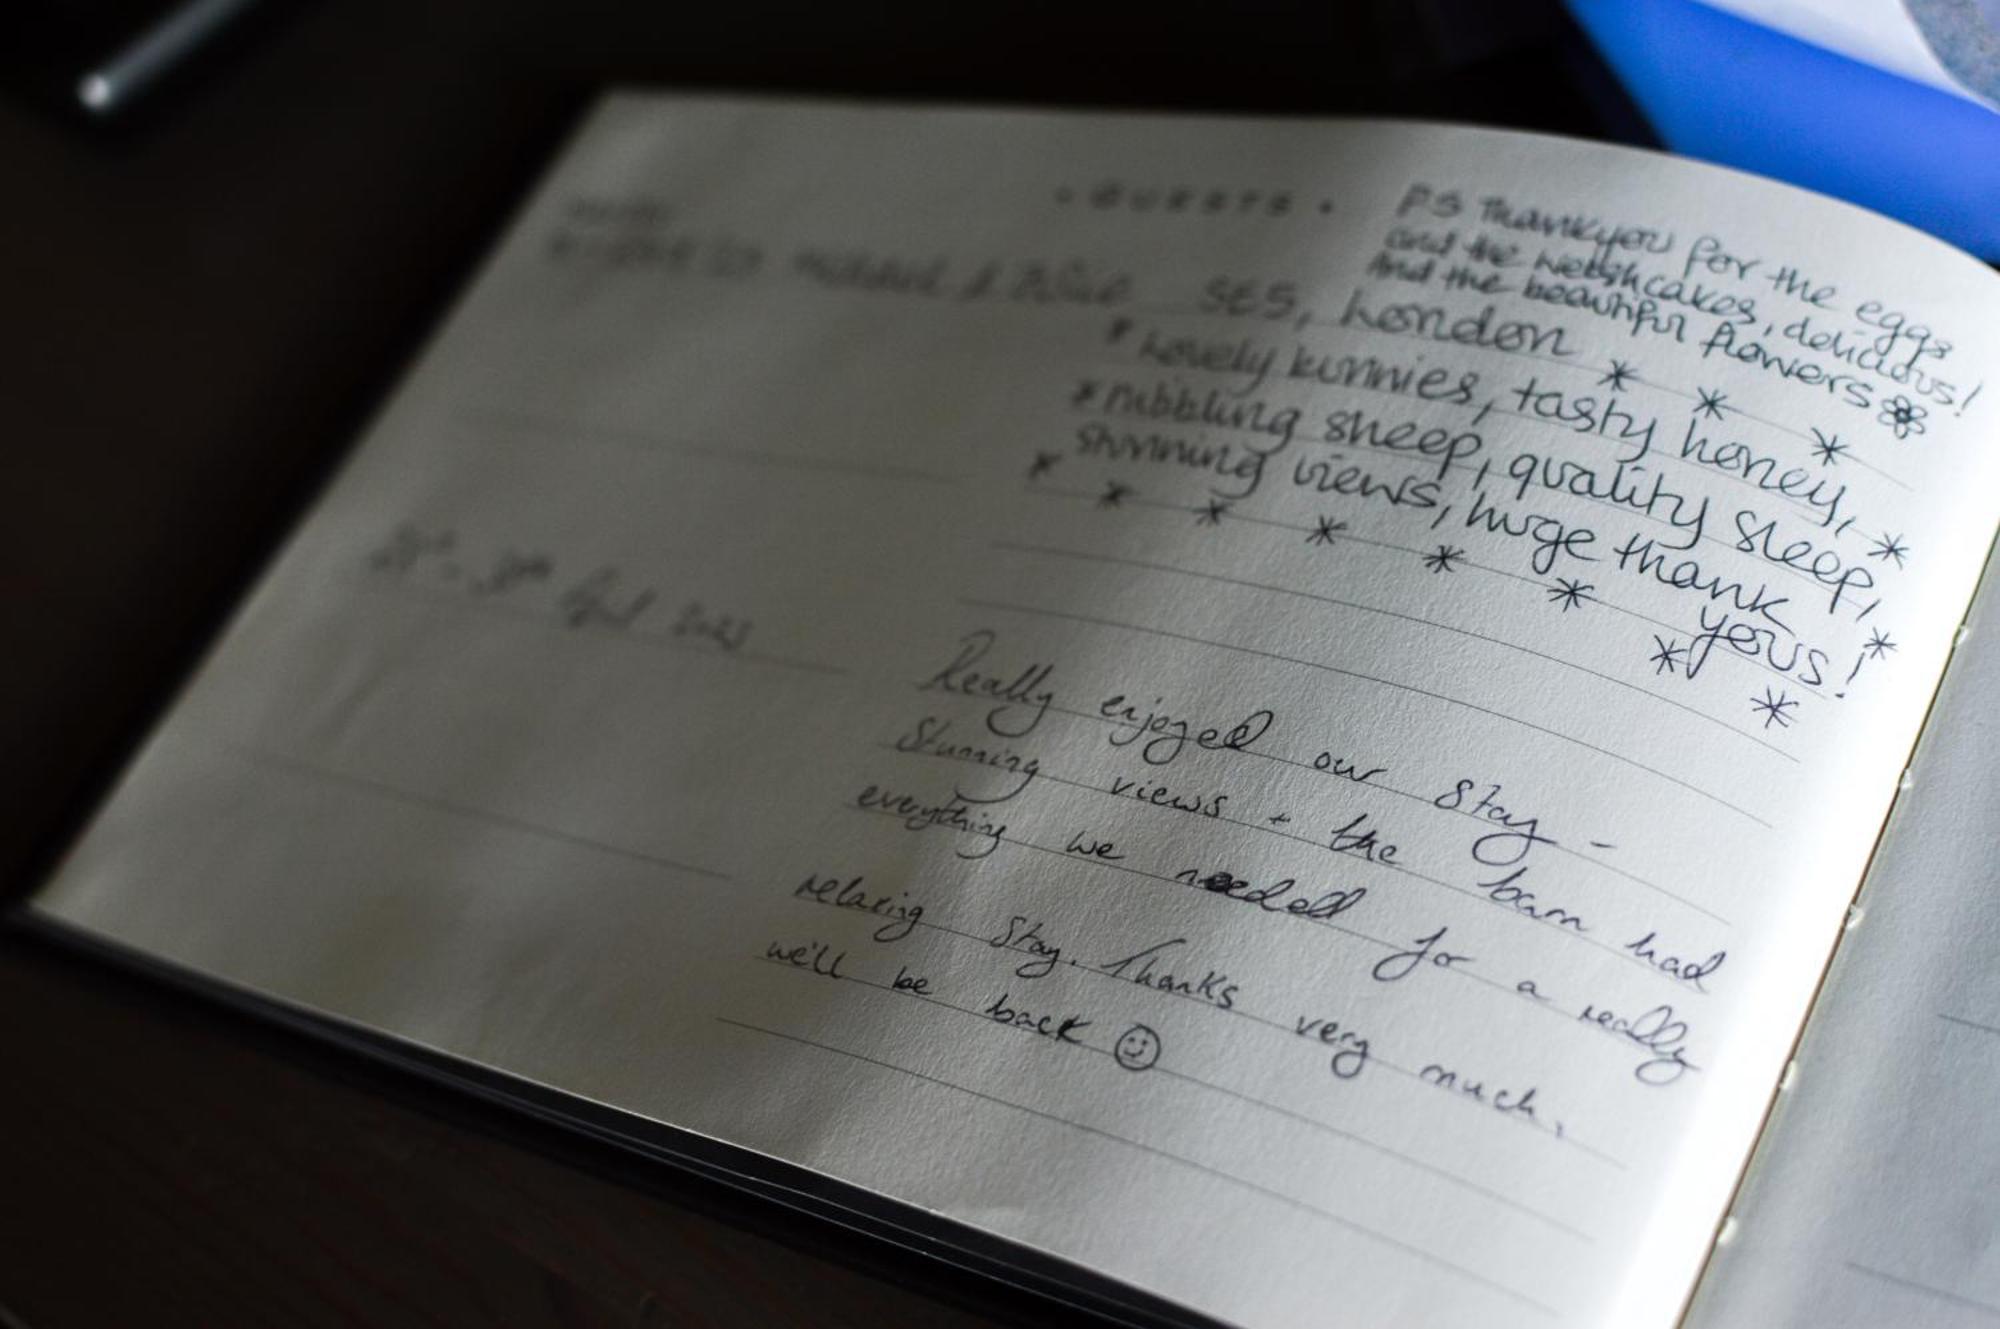 • GUESTS •
PS Thankyou for the eggs
and the welshcakes, delicious!
And the beautiful flowers
SE5, London
* Lovely bunnies, tasty honey, *
* nibbling sheep, quality sleep,
stunning views, huge thank
yous!
21st - 30th April
Really enjoyed our stay -
Stunning views + the barn had
everything we needed for a really
relaxing stay. Thanks very much,
we'll be back ☺